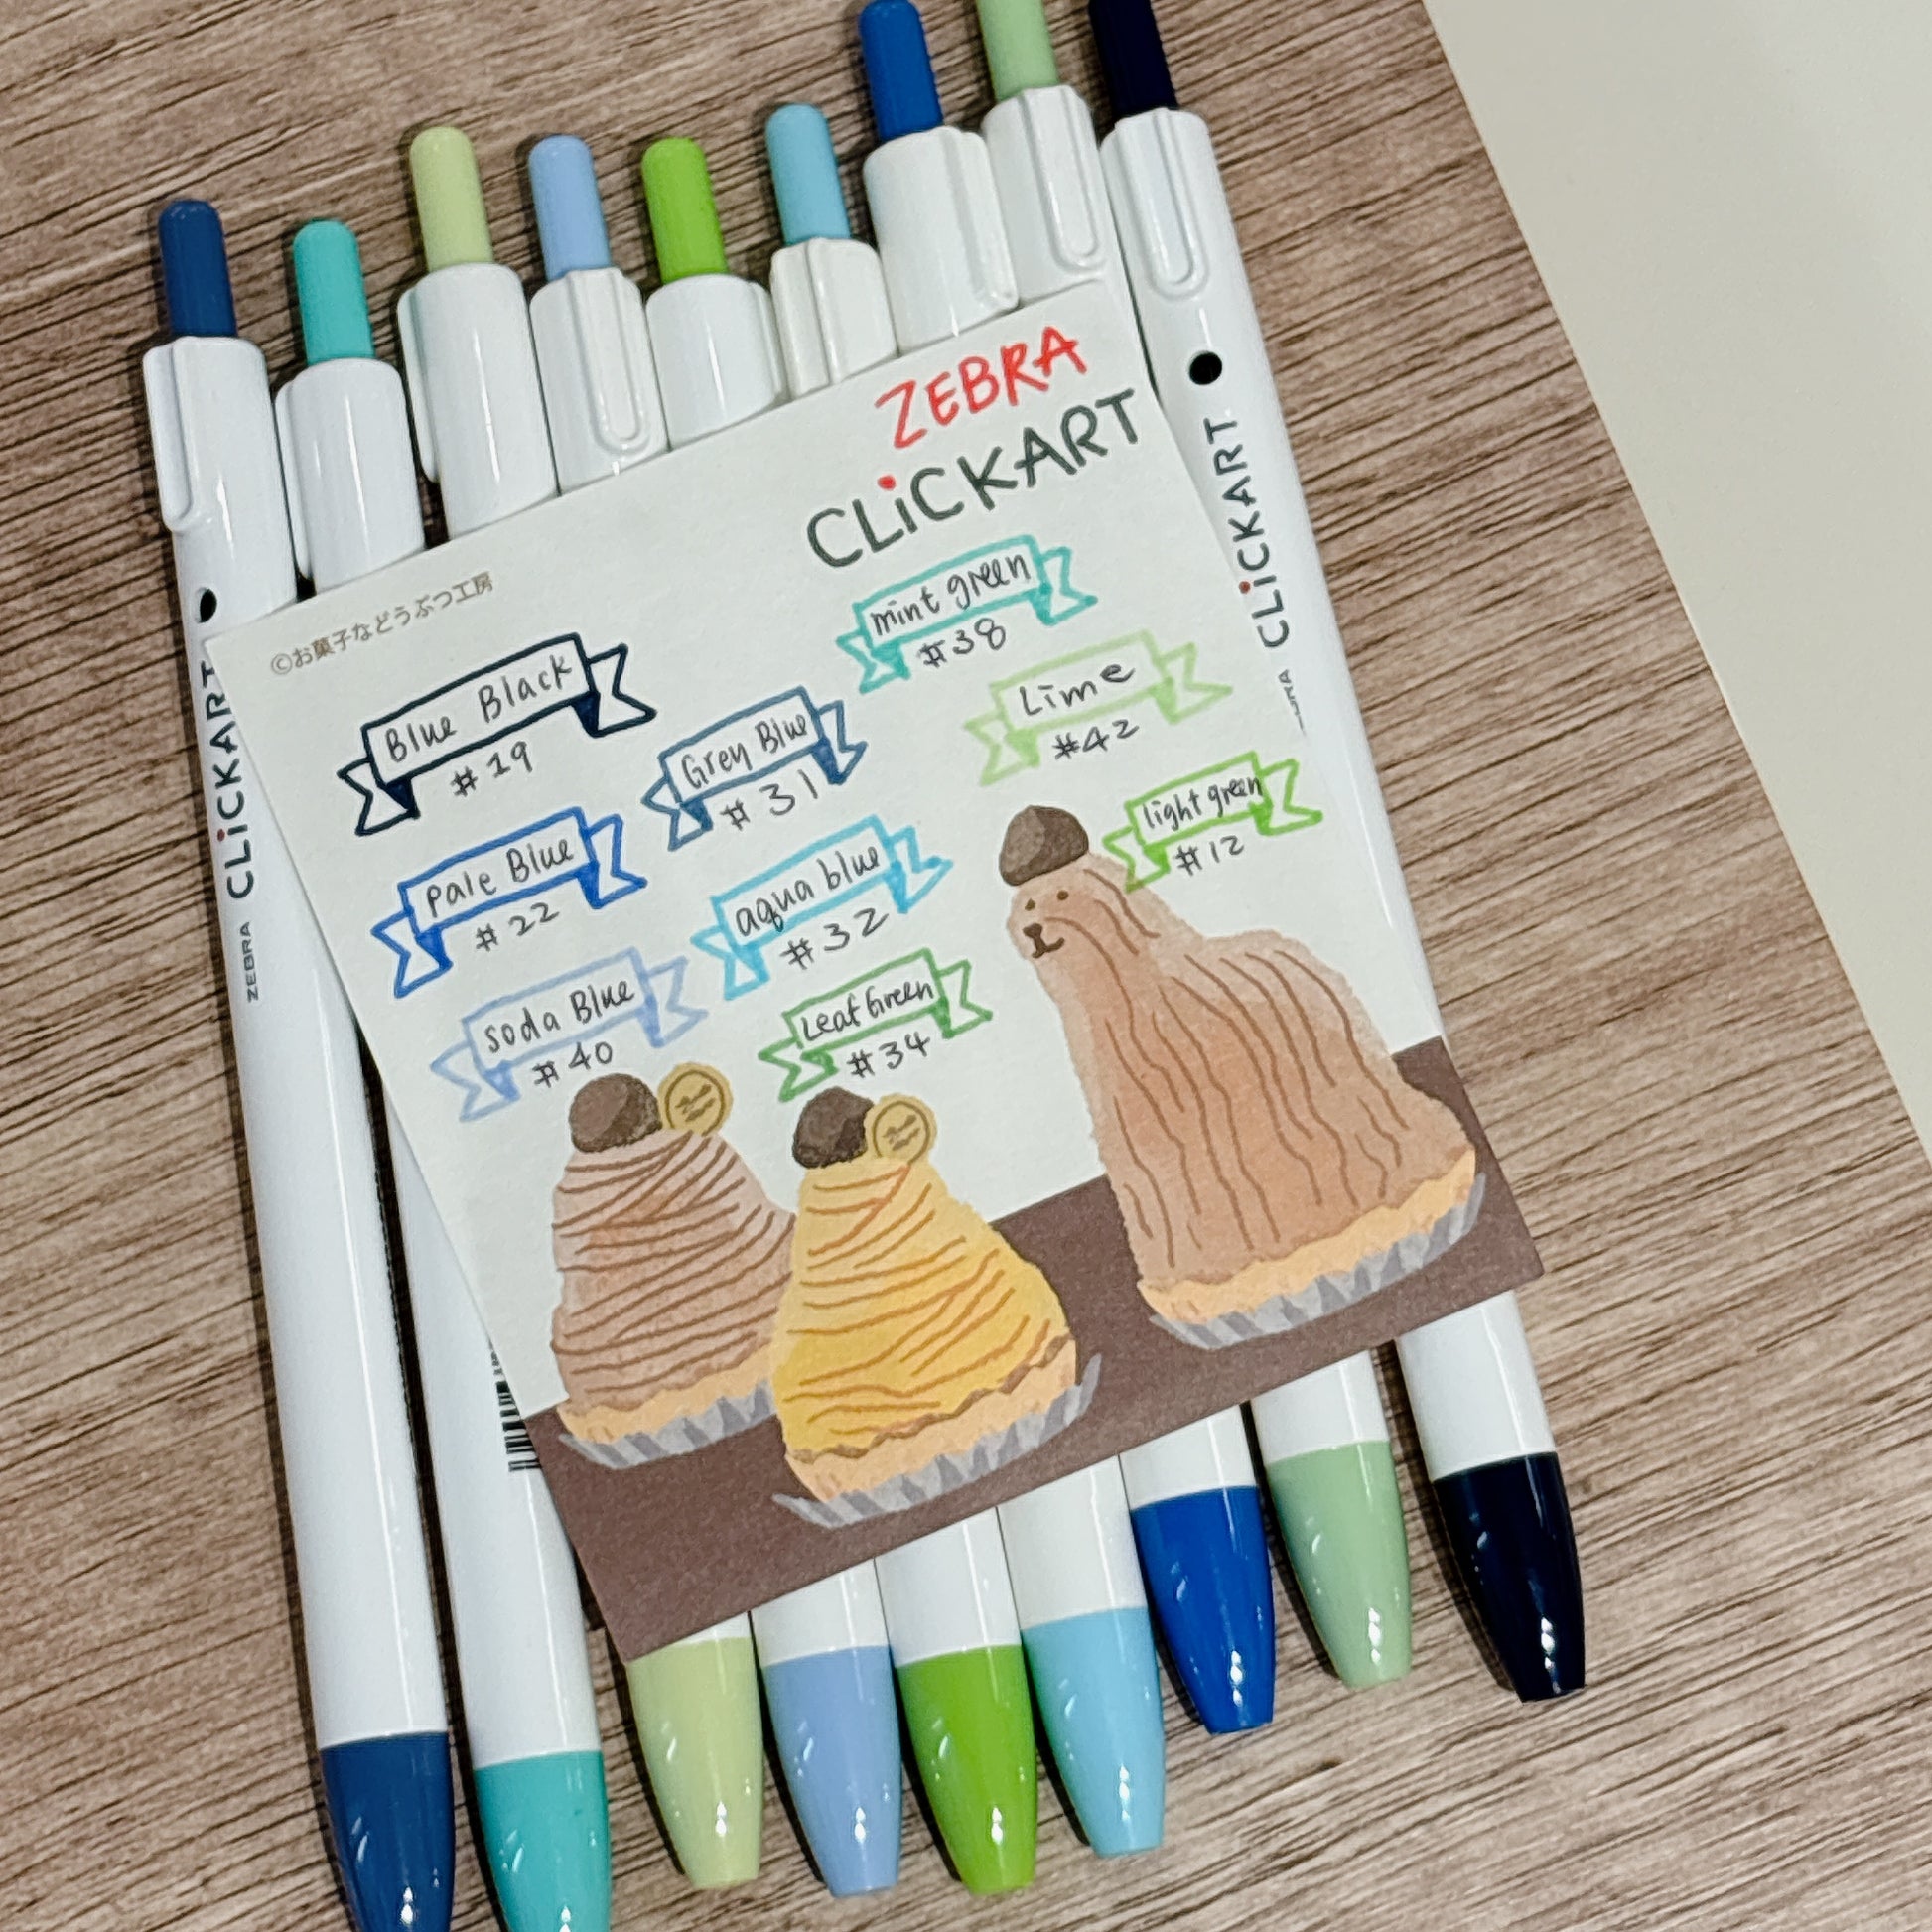 ZEBRA
CLiCKART
©お菓子などうぶつ工房
mint green
#38
Blue Black
#19
Grey Blue
#31
Lime
#42
Pale Blue
#22
aqua blue
#32
light green
#12
soda Blue
#40
Leaf Green
#34
ZEBRA CLiCKART
CLiCKART